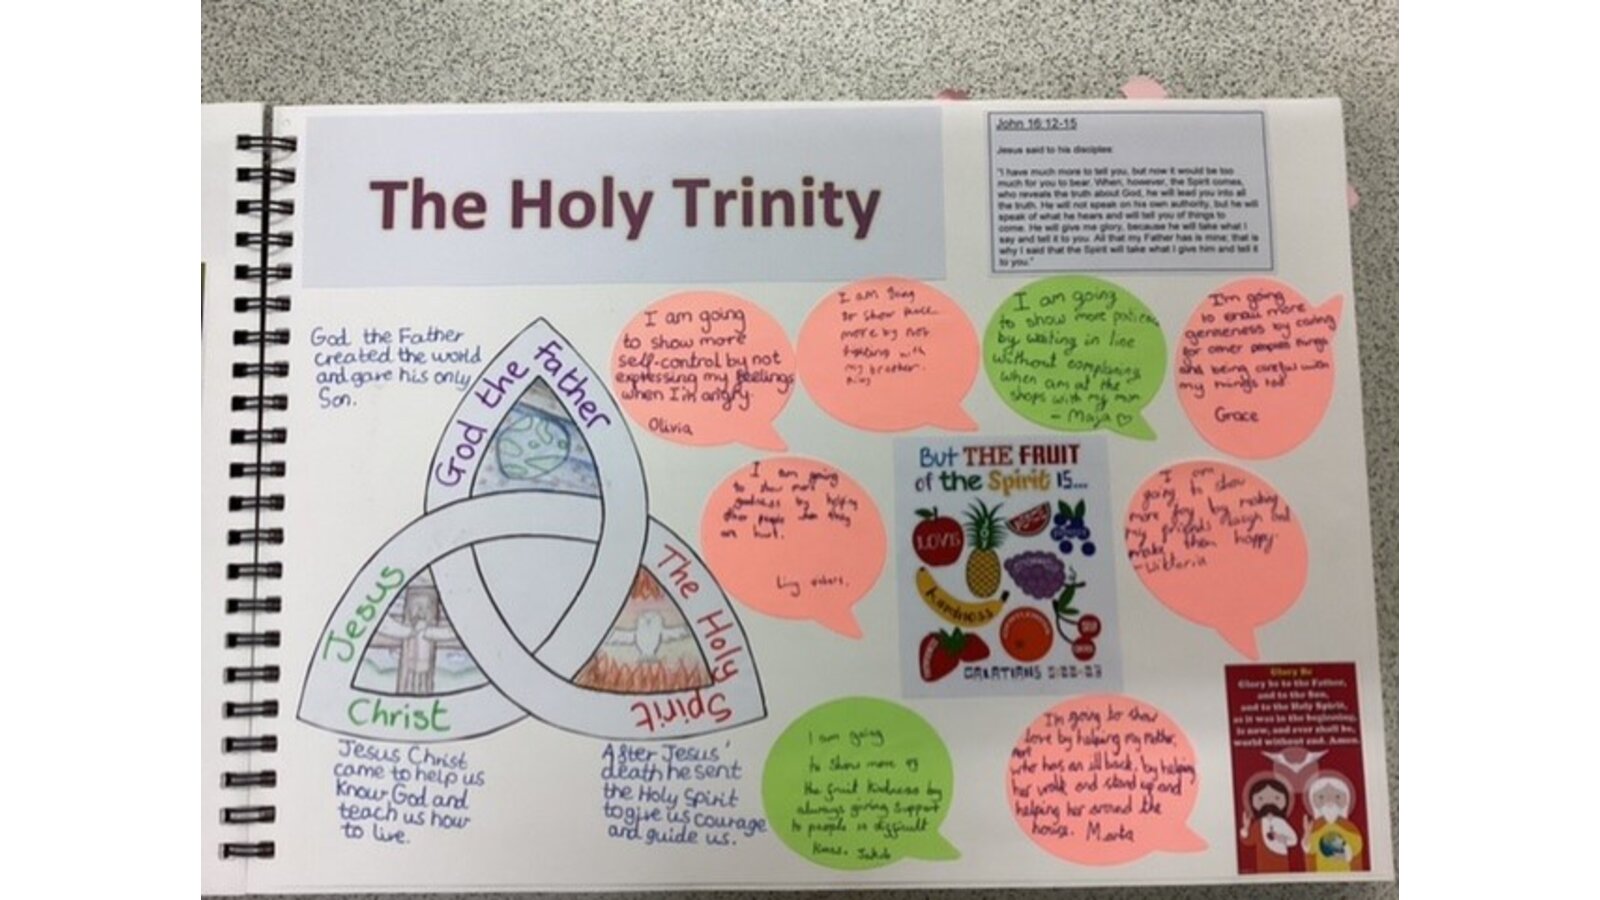 The Holy Trinity
John 16:12-15
Jesus said to his disciples:
"I have much more to tell you, but now it would be too
much for you to bear. When, however, the Spirit comes,
who reveals the truth about God, he will lead you into all
the truth. He will not speak on his own authority, but he will
speak of what he hears and will tell you of things to
come. He will give me glory, because he will take what I
say and tell it to you. All that my Father has is mine; that is
why I said that the Spirit will take what I give him and tell it
to you."
God the Father
created the world
and gave his only
Son.
God the Father
Jesus
Christ
The Holy Spirit
Jesus Christ
came to help us
know God and
teach us how
to live.
After Jesus'
death he sent
the Holy Spirit
to give us courage
and guide us.
I am going
to show more
self-control by not
expressing my feelings
when I'm angry.
Olivia
I am going
to show
more by not
fighting with
my brother.
I am going
to show more
by waiting in line
without complaining
when am at the
shops with my mum
- Maja
I'm going
to more
by caring
for other things
and being careful with
my things too
Grace
I am going
to show more
goodness by helping
other people when they
are hurt.
I am
going to show
more joy by making
my friends laugh and
make them happy
- Wiktoria
But THE FRUIT
of the Spirit IS...
LOVE
Kindness
GALATIANS 5:22-23
I am going
to show more of
the fruit kindness by
always giving support
to people in difficult
times. Jakub
I'm going to show
love by helping my mother,
who has an ill back, by helping
her walk and stand up and
helping her around the
house. Marta
Glory Be
Glory be to the Father,
and to the Son,
and to the Holy Spirit,
as it was in the beginning,
is now, and ever shall be,
world without end. Amen.